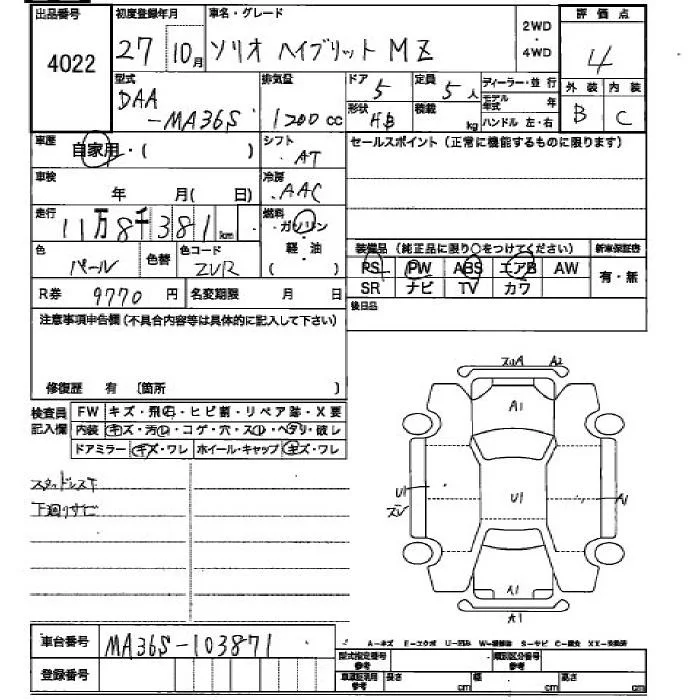 出品番号 初度登録年月 車名・グレード 2WD・4WD 評価点
4022 27 10月 ソリオ ハイブリット MZ 4
型式 排気量 ドア 定員 ディーラー・並行 外装 内装
DAA 5 5人 モデル年式 年 B C
-MA36S 1200cc 形状 HB 積載 kg ハンドル 左・右
車歴 自家用・( ) シフト AT セールスポイント (正常に機能するものに限ります)
車検 年 月( 日) 冷房 AAC
走行 11万8千381km 燃料 ガソリン・軽・油 ( )
色 パール 色替 色コード ZVR 装備品 (純正品に限り○をつけてください) 新車保証書
PS PW ABS エアB AW 有・無
SR ナビ TV カワ
R券 9770円 名変期限 月 日 後日品
注意事項申告欄 (不具合内容等は具体的に記入して下さい)
修復歴 有 〔箇所 〕
検査員記入欄 FW キズ・飛石・ヒビ割・リペア跡・X要
内装 キズ・汚レ・コゲ・穴・スレ・ヘタリ・破レ
ドアミラー キズ・ワレ ホイール・キャップ キズ・ワレ
スタッドレス下
下廻りサビ
A2
A1
U1
U1
A1
A1
A1
車台番号 MA36S-103871
A-キズ E-エクボ U-凹み S-サビ
登録番号 型式指定番号 参考 類別区分番号 参考
長さ cm 幅 cm 高さ cm